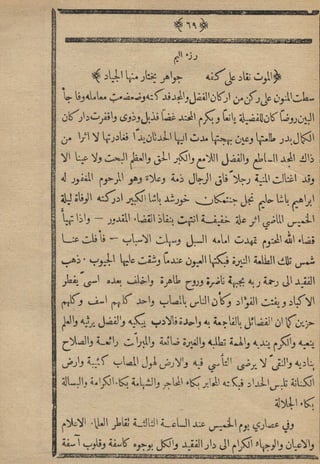 ﴿ ٦٩ ﴾
رزء اليم
﴿ الموت نقاد على كفه جواهر يختار منها الجياد ﴾
سطت المنون على ركن من اركان الفضل والمجد فدكته وضعضعت معامله وفاجأ
البين روضًا كان للفضيلة يانعًا وبكرم المحتد غضًا فذبل وذوى واقفرت دار كان
الكمال بدر طلعتها وعين بهجتها مدت اليها الحدثان يدًا فغادرتها لا اثرا من
ذاك المجد الساطع والفضل اللامع والكبر الحق والعظم البحت ولا عينا الا
وقد اغتالت المنية رجلاً فاق الرجال ذمة وعلاء وهو المرحوم المغفور له
ابراهيم باشا حليم نجل جنتمكان خورشد باشا الكبير ادركته الوفاة ليلة
الخميس الماضي اثر علة خفيفة انتهت بنفاذ القضاء المقدور — واذا تهيأ
قضاء الله المحتوم تمهدت امامه السبل وسهلت الاسباب — فأفلت عنا
شمس تلك الطلعة النيرة فبكتها العيون عندما وشقت عليها الجيوب. ذهب
الفقيد الى رحمة ربه بجبهة ناضرة وروح طاهرة واخلف بعده اسى يفطر
الاكباد ويفتت الفؤاد وكأن الناس بالمصاب واحد كلهم اسف وكلهم
حزين كما ان الفضائل بالفاجعة به واحدة فالادب يبكيه والفضل يرثيه والعلم
ينعيه والكرم يندبه والهمة تطلبه والغيرة ضائعة والمبرأت رائعة والصلاح
يناديه والتقى لا يرضى التأسي فيه والارض لهول المصاب كئيبة وارض
الكنانة تلبس الحداد فبكته المحابر بكاء المحاجر والشهامة بكاء الكرامة والبسالة
بكاء الجلالة
وفي عصاري يوم الخميس عند الساعة الثالثة تقاطر العلماء الاعلام
والاعيان والوجهاء الكرام الى دار الفقيد والكل بوجوه كاسفة وقلوب آسفة